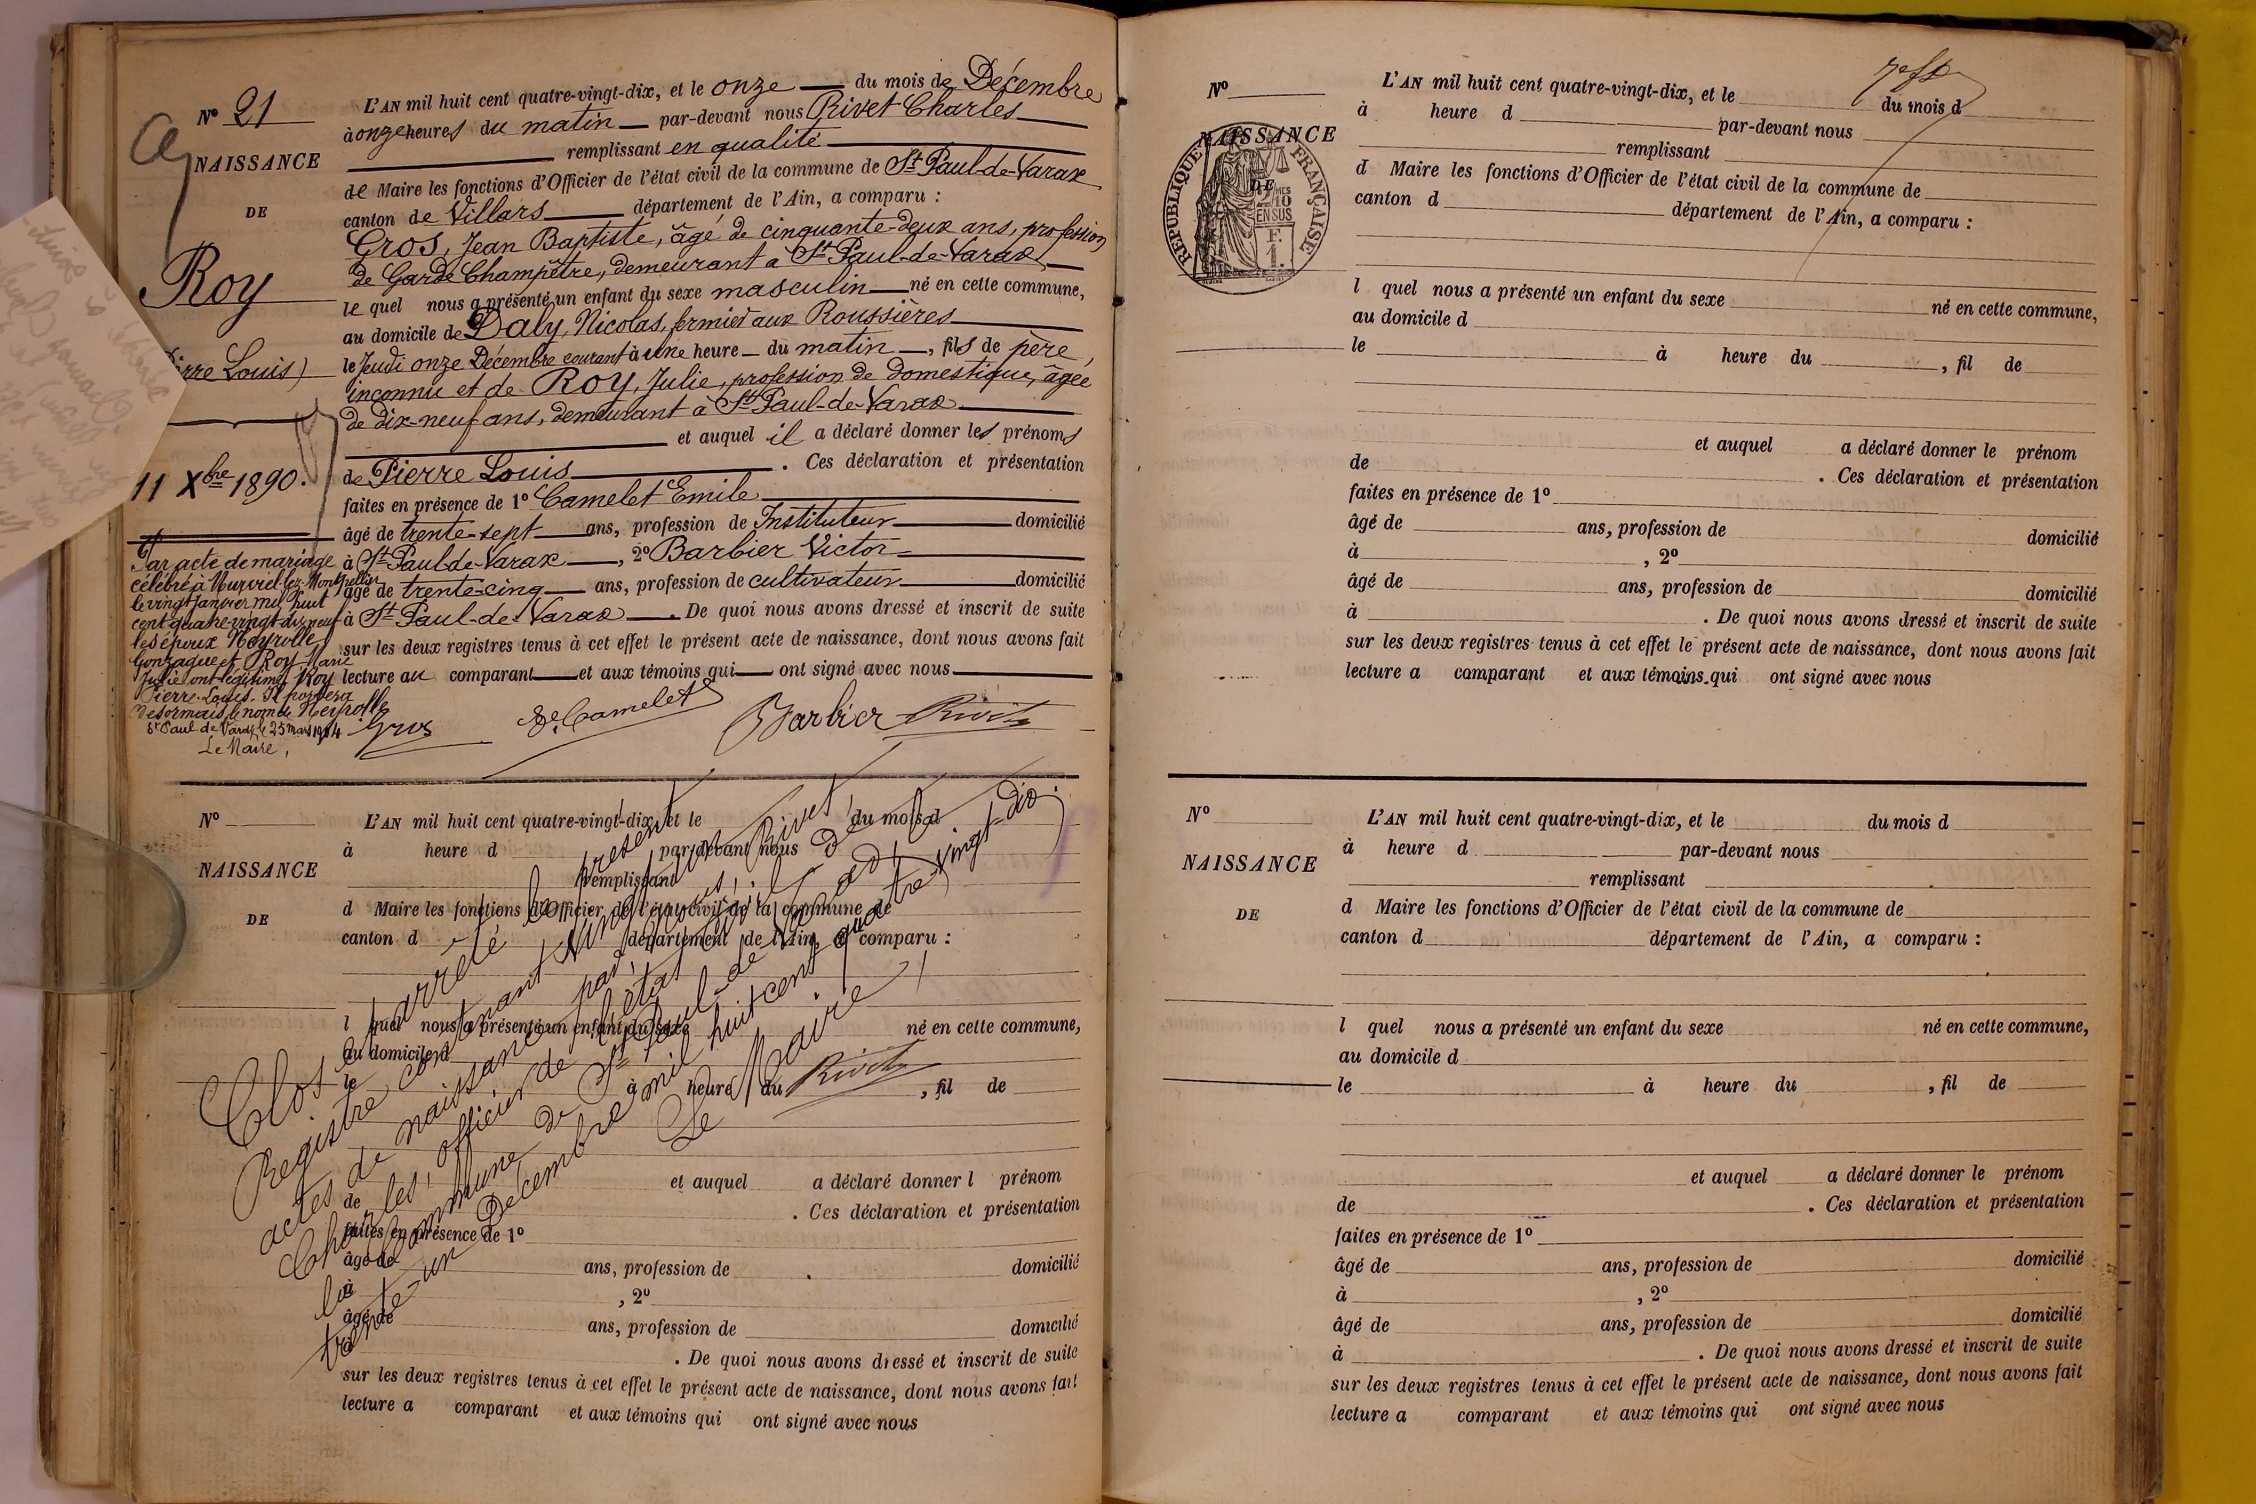 N° 21
NAISSANCE
DE
Roy
Pierre Louis)
11 Xbre 1890.
L'AN mil huit cent quatre-vingt-dix, et le onze du mois de Décembre
à onze heures du matin par-devant nous Rivet Charles
remplissant en qualité
de Maire les fonctions d'Officier de l'état civil de la commune de St Paul-de-Varax
canton de Villars département de l'Ain, a comparu :
Gros, Jean Baptiste, âgé de cinquante-deux ans, profession
de Garde Champêtre, demeurant à St Paul-de-Varax
le quel nous a présenté un enfant du sexe masculin né en cette commune,
au domicile de Daly, Nicolas, fermier aux Roussières
le Jeudi onze Décembre courant à une heure du matin, fils de père
inconnu et de Roy, Julie, profession de domestique, âgée
de dix-neuf ans, demeurant à St Paul-de-Varax
et auquel il a déclaré donner les prénoms
de Pierre Louis. Ces déclaration et présentation
faites en présence de 1° Camelet Emile
âgé de trente-sept ans, profession de Instituteur domicilié
à St Paul-de-Varax, 2° Barbier Victor
âgé de trente-cinq ans, profession de cultivateur domicilié
à St Paul-de-Varax. De quoi nous avons dressé et inscrit de suite
sur les deux registres tenus à cet effet le présent acte de naissance, dont nous avons fait
lecture au comparant et aux témoins qui ont signé avec nous
Gros E. Camelet Barbier Rivet
Par acte de mariage
célébré à Murviel-lez-Montpellier
le vingt Janvier mil huit
cent quatre-vingt-dix neuf
les époux Neyrolles
Gonzague et Roy Marie
Julie ont légitimé Roy
Pierre-Louis. Il portera
désormais le nom de Neyrolles
St Paul de Varax, le 25 mars 1904
Le Maire,
N°
NAISSANCE
DE
L'AN mil huit cent quatre-vingt-dix, et le du mois d
à heure d par-devant nous
remplissant
d Maire les fonctions d'Officier de l'état civil de la commune de
canton d département de l'Ain, a comparu :
l quel nous a présenté un enfant du sexe né en cette commune,
au domicile d
le à heure du , fil de
et auquel a déclaré donner l prénom
de . Ces déclaration et présentation
faites en présence de 1°
âgé de ans, profession de domicilié
à , 2°
âgé de ans, profession de domicilié
à . De quoi nous avons dressé et inscrit de suite
sur les deux registres tenus à cet effet le présent acte de naissance, dont nous avons fait
lecture a comparant et aux témoins qui ont signé avec nous
Clos et arrêté le présent
Registre contenant vingt un
actes de naissance par nous, Rivet
Charles, officier de l'état civil de
la Commune de St Paul-de-Varax, le
trente-un Décembre mil huit cent quatre-vingt-dix.
Le Maire,
Rivet
N°
NAISSANCE
DE
RÉPUBLIQUE FRANÇAISE
2/10
EN SUS
L'AN mil huit cent quatre-vingt-dix, et le du mois d
à heure d par-devant nous
remplissant
d Maire les fonctions d'Officier de l'état civil de la commune de
canton d département de l'Ain, a comparu :
l quel nous a présenté un enfant du sexe né en cette commune,
au domicile d
le à heure du , fil de
et auquel a déclaré donner le prénom
de . Ces déclaration et présentation
faites en présence de 1°
âgé de ans, profession de domicilié
à , 2°
âgé de ans, profession de domicilié
à . De quoi nous avons dressé et inscrit de suite
sur les deux registres tenus à cet effet le présent acte de naissance, dont nous avons fait
lecture a comparant et aux témoins qui ont signé avec nous
N°
NAISSANCE
DE
L'AN mil huit cent quatre-vingt-dix, et le du mois d
à heure d par-devant nous
remplissant
d Maire les fonctions d'Officier de l'état civil de la commune de
canton d département de l'Ain, a comparu :
l quel nous a présenté un enfant du sexe né en cette commune,
au domicile d
le à heure du , fil de
et auquel a déclaré donner le prénom
de . Ces déclaration et présentation
faites en présence de 1°
âgé de ans, profession de domicilié
à , 2°
âgé de ans, profession de domicilié
à . De quoi nous avons dressé et inscrit de suite
sur les deux registres tenus à cet effet le présent acte de naissance, dont nous avons fait
lecture a comparant et aux témoins qui ont signé avec nous